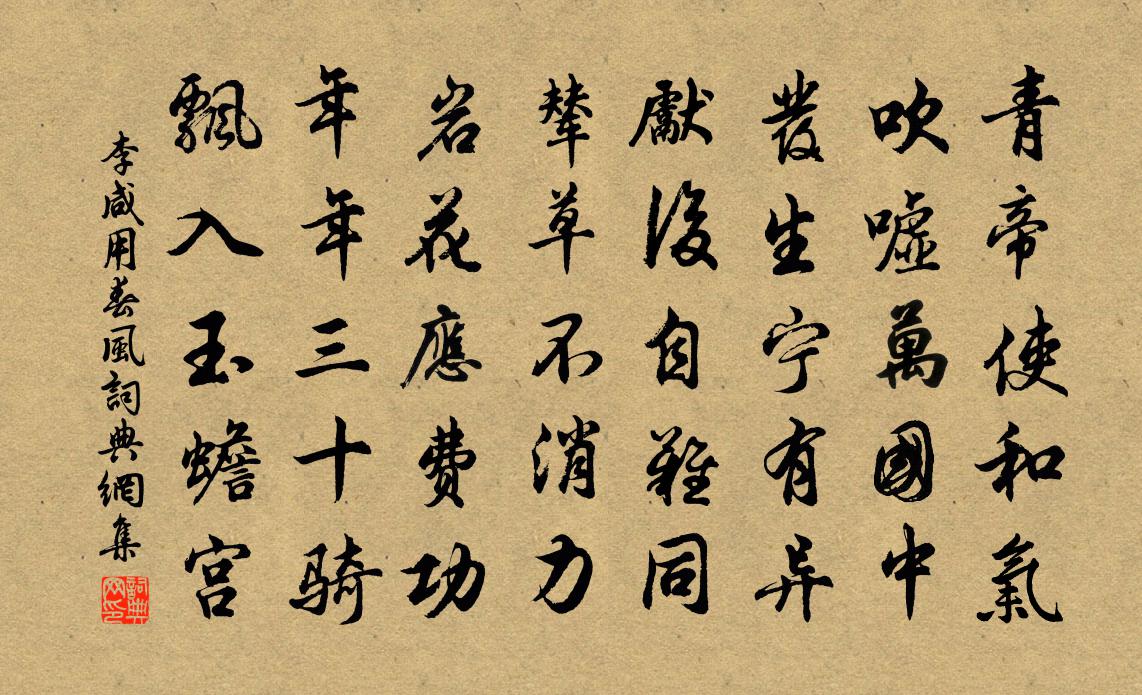 青帝使和氣
吹噓萬國中
發生宁有异
獻後自難同
輦草不消力
岩花應費功
年年三十騎
飄入玉蟾宮
李咸用春風詞典網集
詞典网印